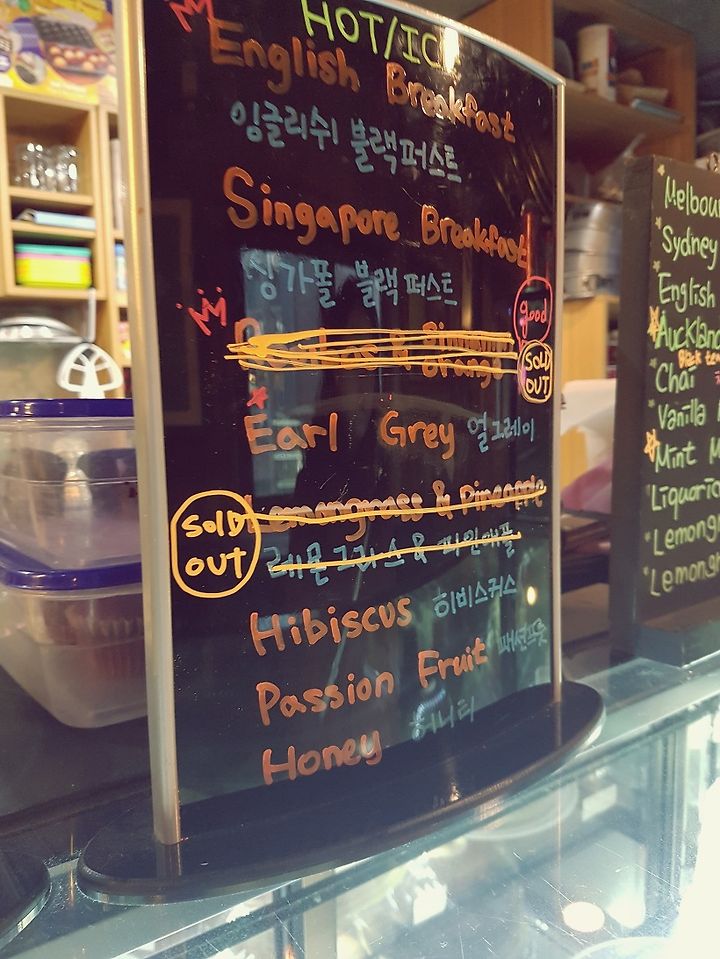 HOT/IC
English Breakfast
잉글리쉬 블랙퍼스트
Singapore Breakfast
싱가폴 블랙퍼스트
good
Orange
SOLD
OUT
Earl Grey 얼그레이
Lemongrass & Pineapple
SOLD
OUT
레몬그라스 & 파인애플
Hibiscus 히비스커스
Passion Fruit 패션프룻
Honey 허니티
Melbou
Sydney
English
Auckland
Chai
Vanilla
Mint M
Liquoric
Lemong
Lemong